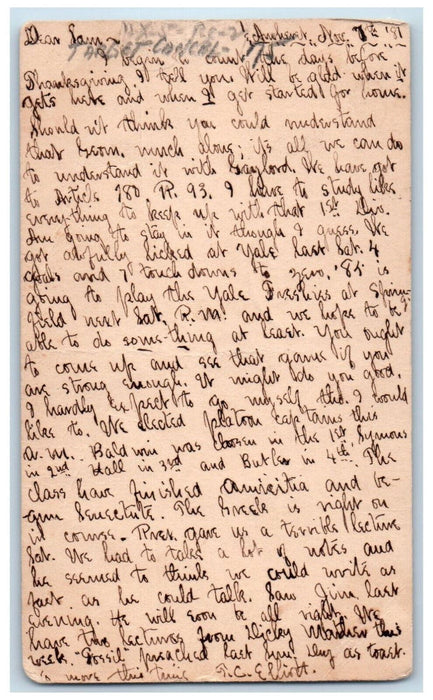 Dear Sam- Amherst, Nov. 7th '81
TARGET CANCEL - 75
I begin to count the days before
Thanksgiving I tell you. Will be glad when it
gets here and when I get started for home.
Should n't think you could understand
that Geom. much alone; it's all we can do
to understand it with Gaylord. We have got
to Article 780 P. 93. I have to study like
everything to keep up with that 1st Div.
Am going to stay in it though I guess. We
got awfully licked at Yale last Sat. 4
goals and 7 touch downs to zero. '85 is
going to play the Yale Freshies at Spring-
field next Sat. P.M. and we hope to be
able to do some-thing at least. You ought
to come up and see that game if you
are strong enough. It might do you good.
I hardly expect to go myself tho. I would
like to. We elected platoon captains this
a.m. Baldwin was chosen in the 1st Symons
in 2nd Hall in 3rd and Butler in 4th. The
class have finished Amicitia and be-
gun Senectute. The Greek is right on
it course. Pres. gave us a terrible lecture
Sat. We had to take a lot of notes and
he seemed to think we could write as
fast as he could talk. Saw Jim last
evening. He will soon be all right. We
have two lectures from Dicky Mather this
week. "Fossil" preached last Sun. Dry as toast.
No more this time F.C. Elliott.